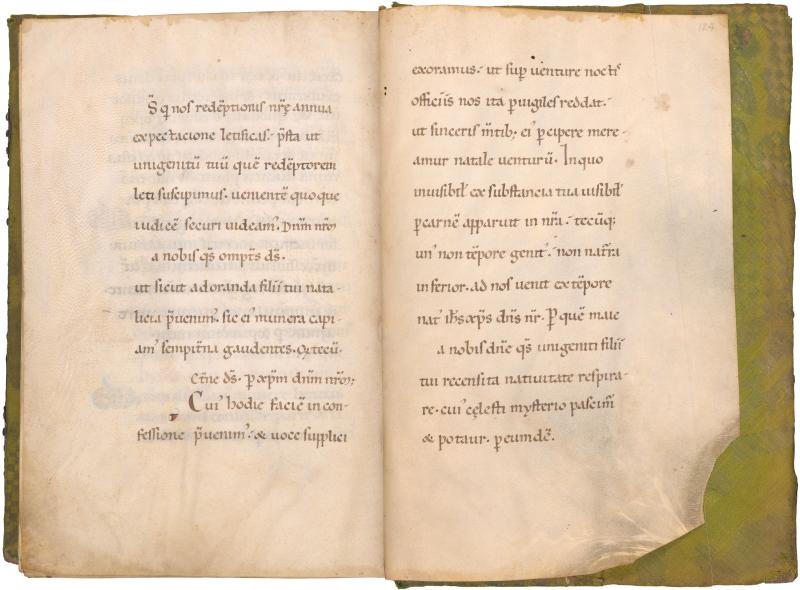 D̄s q̄ nos redēptionis nr̄ę annua
expectacione letificas. p̄sta ut
unigenitū tuū quē redēptorem
leti suscipimus. uenientē quoque
iudicē securi uideam᾽. Dnm̄ nrm̄
a nobis q̄s omp̄ts d̄s.
ut sicut adoranda filii tui nata-
licia p̄uenim᾽. sic ei᾽ munera capi-
am᾽ sempit̄na gaudentes. Qı tecū.
et̄ne d̄s. p xp̄m dnm̄ nrm̄;
Cui᾽ hodie faciē in con-
fessione p̄uenim᾽. & uoce supplici
124
exoramus. ut sup uenture noctis
officiis nos ita puigiles reddat.
ut sinceris m̄tib; ei᾽ pcipere mere-
amur natale uenturū. In quo
inuisibil᾽ ex substancia tua uisibil᾽
p carnē apparuit in nr̄a. tecūq;
un᾽ non tēpore genit᾽. non nat̄ra
inferior. ad nos uenit ex tēpore
nat᾽ ih̄s xp̄s dn̄s nr̄. P quē maie
a nobis dn̄e q̄s unigeniti filii
tui recensita natiuitate respira-
re. cui᾽ cęlesti mysterio pascim᾽
& potaur. p eumdē.